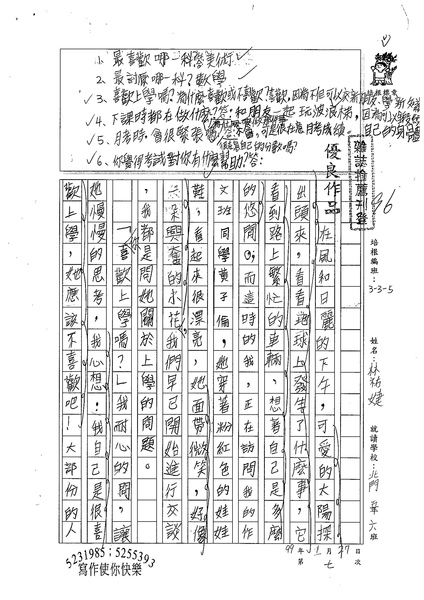 1、最喜歡哪一科?答美術。
2、最討厭哪一科?數學
3、喜歡上學嗎?為什麼喜歡或不喜歡?喜歡,因為不但可以交新朋友、學新
4、下課時都在做什麼?答:和朋友一起玩波浪梯,因為可以鍛鍊自己的身體
5、月考時,會很緊張嗎?答:不會,可是很在意月考成績。
6、你覺得考試對你有什麼幫助?答:
優良作品
雜誌推薦刊登
96
培根編班:3-3-5
姓名:林祐婕
就讀學校:北門 三年六班
在風和日麗的下午,可愛的太陽探
出頭來,看看地球上發生了什麼事,它
看到路上繁忙的車輛,想著自己是多麼
的悠閒。而這時的我,正在訪問我的作
文班同學黃子倫,她穿著粉紅色的娃娃
鞋,看起來很漂亮,她面帶微笑,好像
一朵興奮的小花,我們早已開始進行交談
,我都是問她關於上學的問題。
「你喜歡上學嗎?」我耐心的問,讓
她慢慢的思考,我心想:我自己是很喜
歡上學,她應該不喜歡吧!大部份的人
99年1月27日
第七次
5231985;5255393
寫作使你快樂